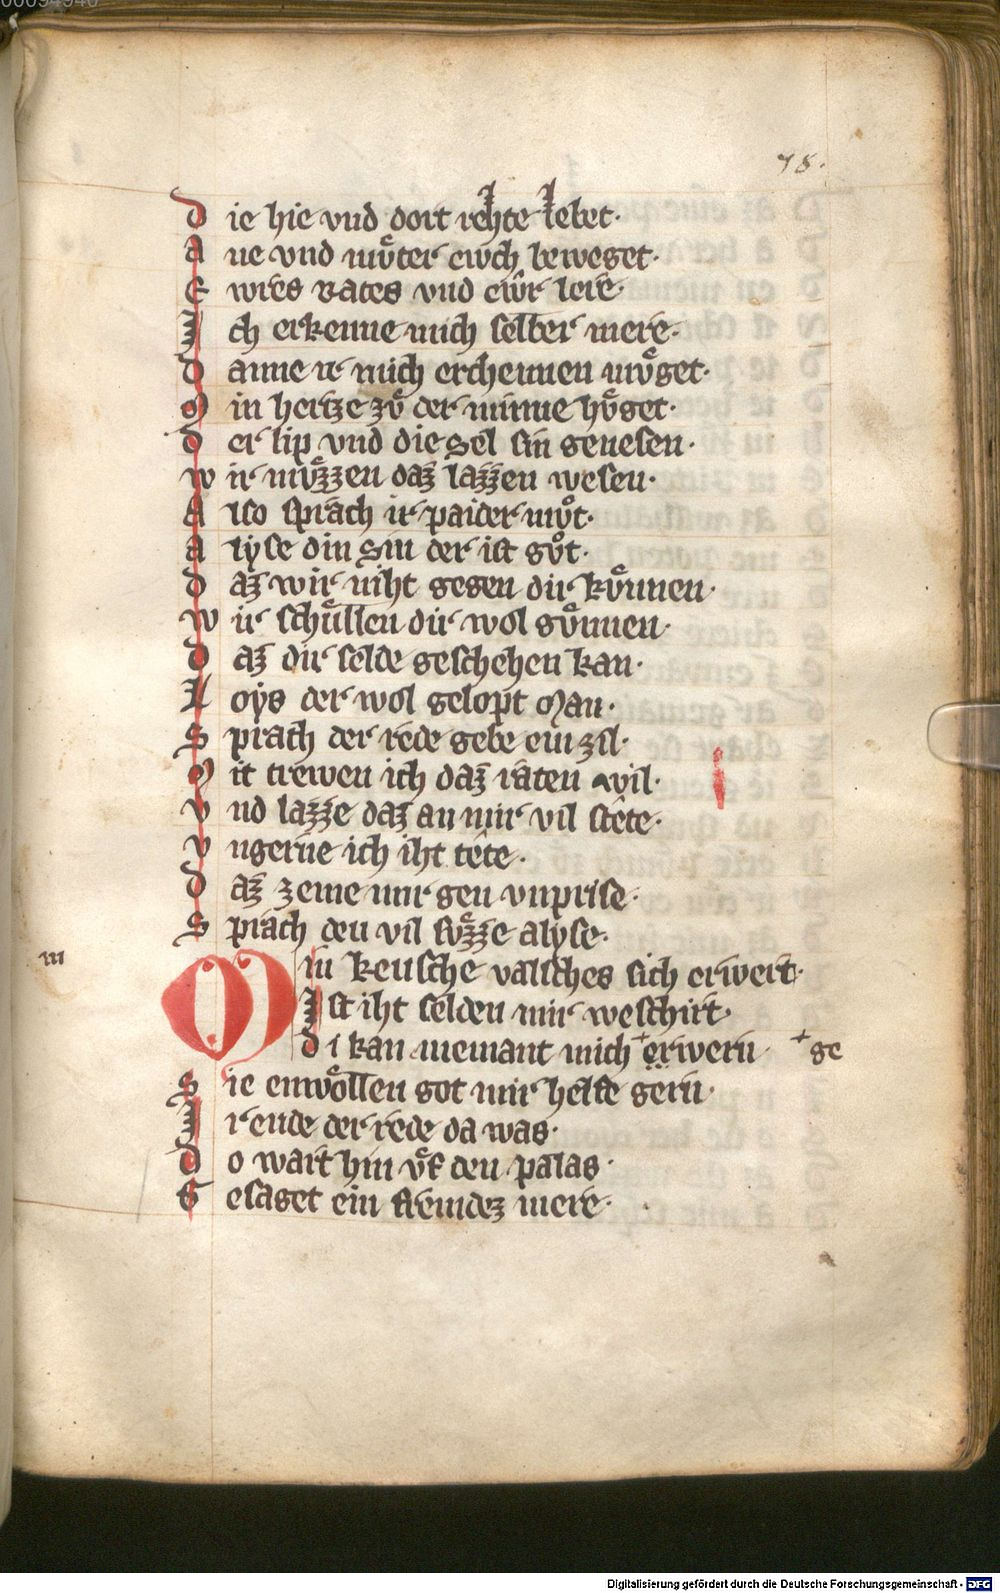 75.
D ie hie vnd dort rehte lebet·
A ne vnd muͦter ewch beweget·
E wͤrs rates vnd ewͤr lere·
J ch erkenne mich selber mere·
D anne ir mich erchennen muͤget·
M in hertze zuͦ der minne huͤget·
D er lip vnd die sel sin genesen·
W ir muͤzzen daz lazzen wesen·
A lso sprach ir paider muͦt·
A lyse din sin der ist guͦt·
D az wir niht gegen dir kuͤnnen·
W ir schuͤllen dir wol guͤnnen·
D az dir selde geschehen kan·
L oys der wol gelopt man·
S prach der rede gebe ein zil·
M it trewen ich daz raten wil·
V nd lazze daz an mir vil stete·
V ngerne ich iht tete·
D az zeme mir gen vnprise·
S prach den vil suͤzze alyse·
m
M in keusche valsches sich erwert·
J st iht selden mir weschirt·
D i kan niemant mich + erwern· + ge
S ie enwoͤllen got mir helfe gern·
J r ende der rede da was·
D o wart hin vf den palas·
G esaget ein fremdez mere·
Digitalisierung gefördert durch die Deutsche Forschungsgemeinschaft - DFG